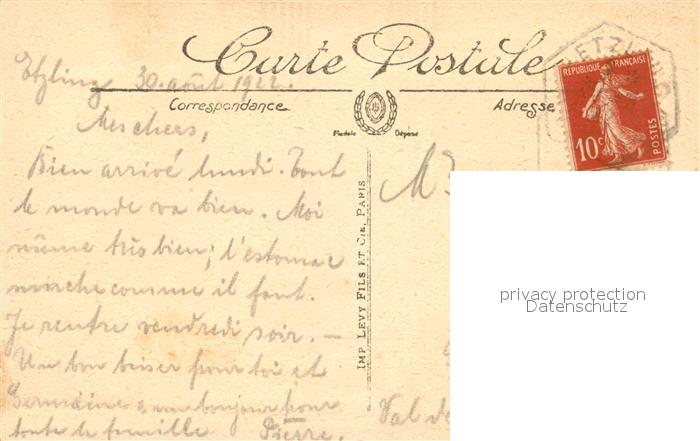 Carte Postale
Etzling 30 août 1922.
Correspondance
Adresse
ETZLING
REPUBLIQUE FRANÇAISE
10c
POSTES
Modèle Déposé
Mes chers,
Bien arrivé lundi. Tout
le monde va bien. Moi
même très bien; l'estomac
marche comme il faut.
Je rentre vendredi soir. —
Un bon baiser pour toi et
Germaine & un bonjour pour
toute la famille Pierre.
IMP LEVY FILS ET CIE, PARIS
M
Val de
privacy protection
Datenschutz